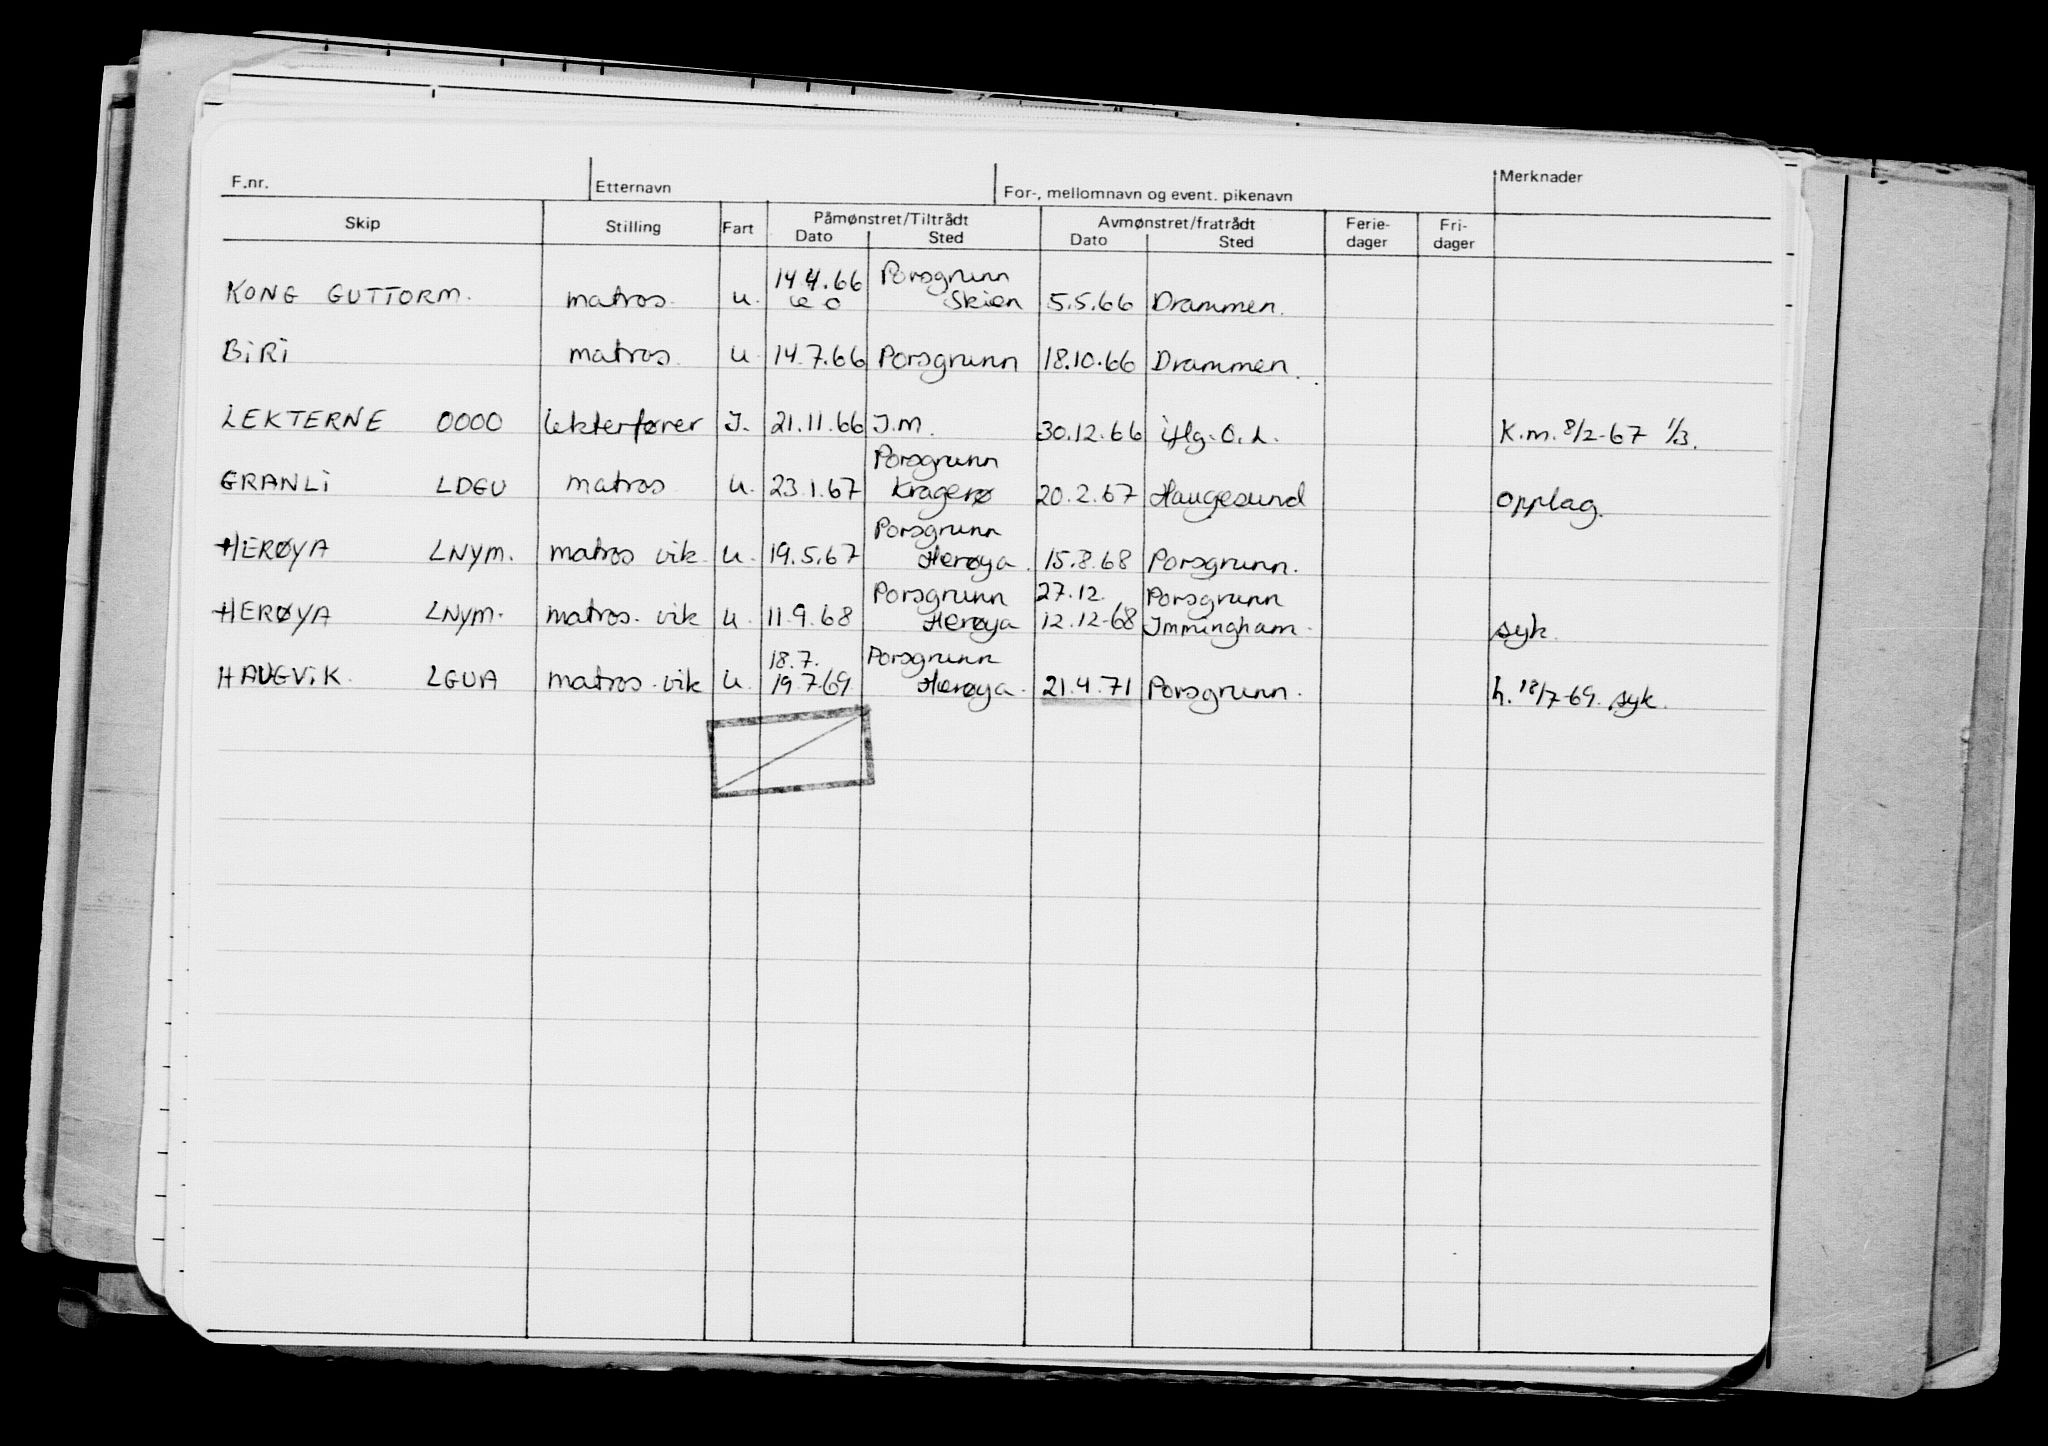 F.nr. Etternavn For-, mellomnavn og event. pikenavn Merknader
Skip Stilling Fart Påmønstret/Tiltrådt Avmønstret/fratrådt Ferie- Fri-
Dato Sted Dato Sted dager dager
14.4.66 Porsgrunn
KONG GUTTORM. matros. u. Skien 5.5.66 Drammen.
BIRI matros. u. 14.7.66 Porsgrunn 18.10.66 Drammen.
LEKTERNE 0000 lekterfører I. 21.11.66 I.M. 30.12.66 iflg. O.L. K.m. 8/2-67 1/3.
Porsgrunn
GRANLI LDGU matros u. 23.1.67 Kragerø 20.2.67 Haugesund opplag.
Porsgrunn
HERØYA LNYM. matros vik. u. 19.5.67 Herøya. 15.8.68 Porsgrunn.
Porsgrunn 27.12. Porsgrunn
HERØYA LNYM. matros. vik u. 11.9.68 Herøya 12.12-68 Immingham. syk.
18.7. Porsgrunn
HAUGVIK. LGUA matros. vik u. 19.7.69 Herøya. 21.4.71 Porsgrunn. h. 18/7-69. syk.